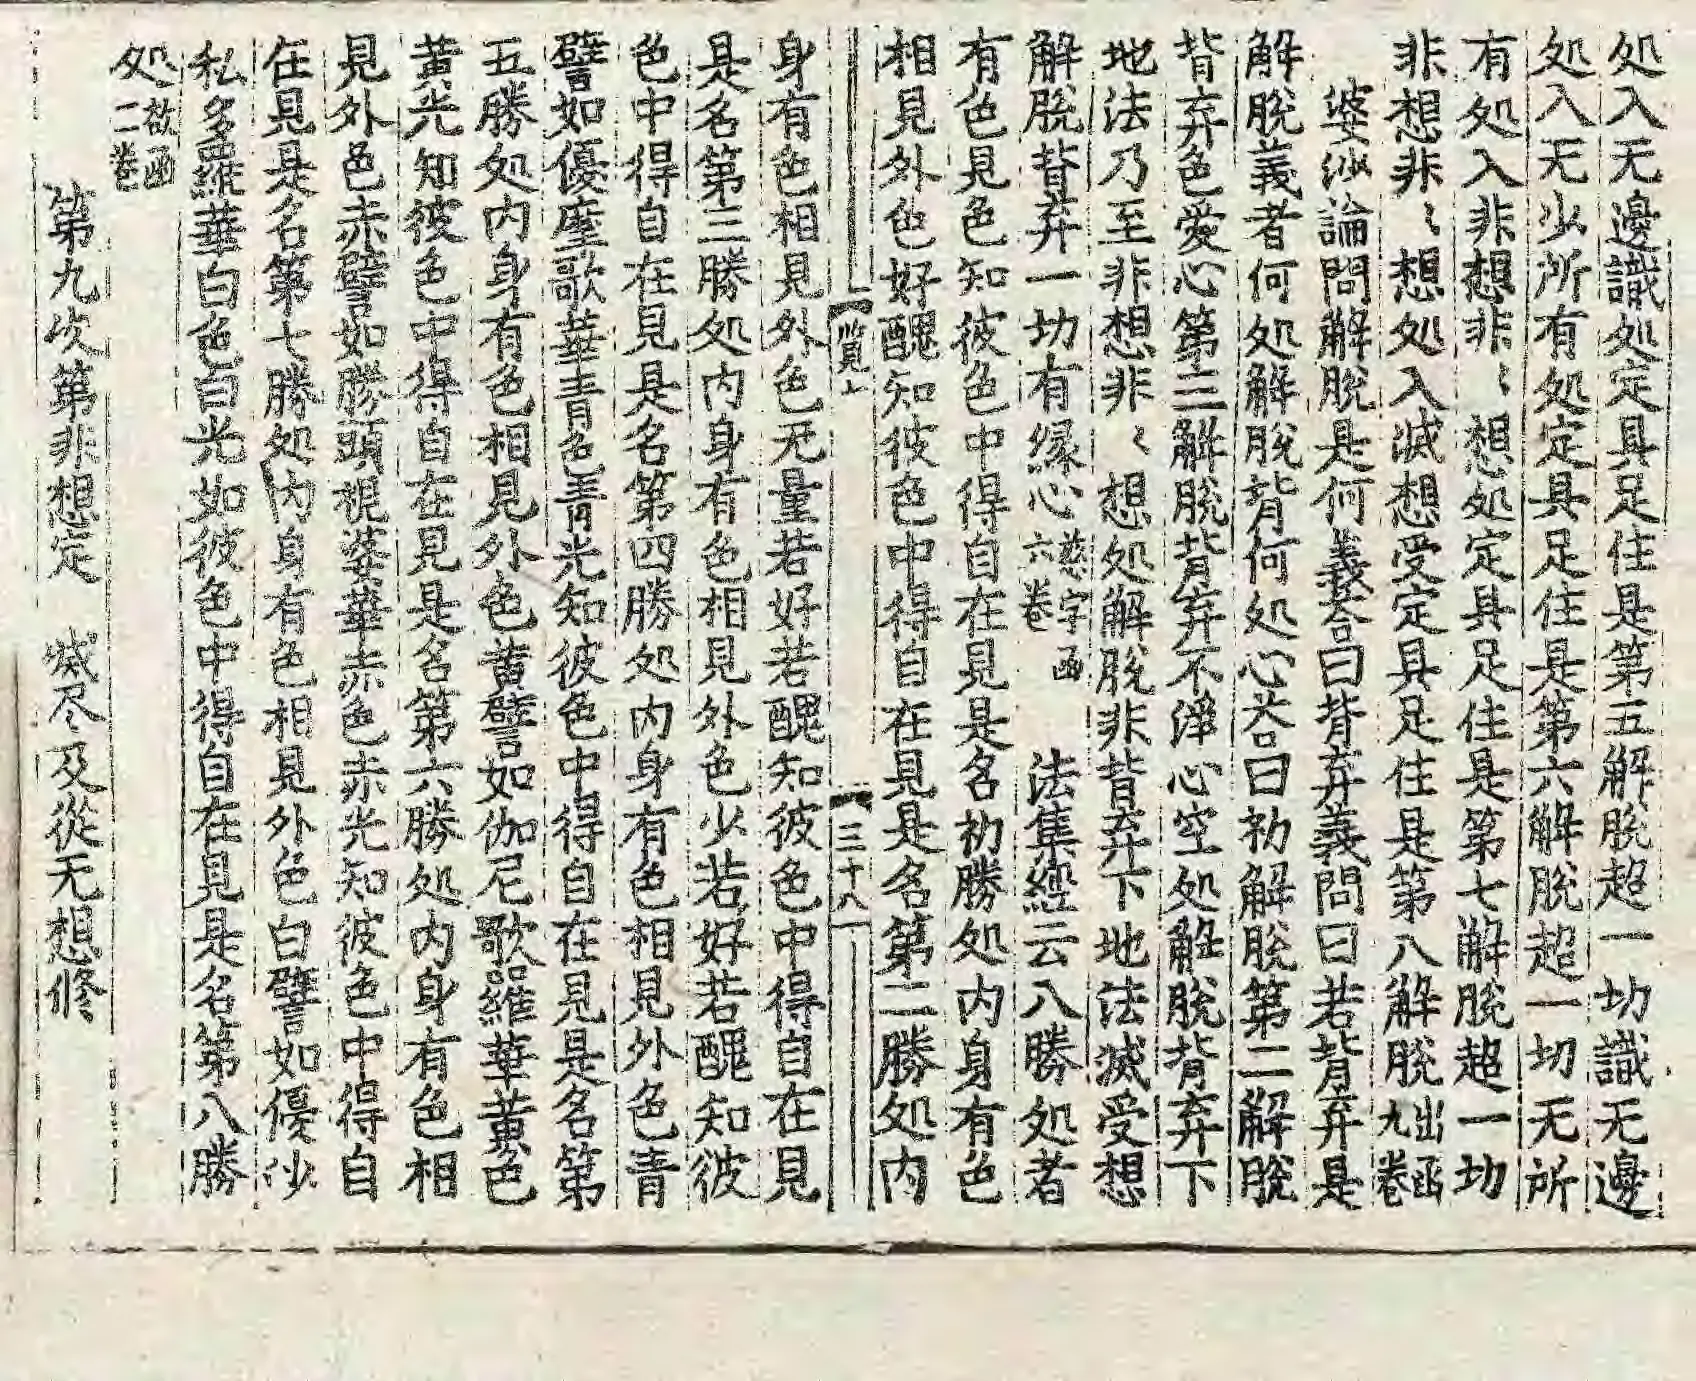 処入无邊識処定具足住是第五解脫超一切識无邊
処入无少所有処定具足住是第六解脫超一切无所
有処入非想非〻想処定具足住是第七解脫超一切
非想非〻想処入滅想受定具足住是第八解脫出函九卷
婆沙論問解脫是何義荅曰背弃義問曰若背弃是
解脫義者何処解脫背何処心荅曰初解脫第二解脫
背弃色愛心第三解脫背弃不淨心空処解脫背弃下
地法乃至非想非〻想処解脫非背弃下地法滅受想
解脫背弃一切有縁心慈字函六卷 法集經云八勝処者
有色見色知彼色中得自在見是名初勝処内身有色
相見外色好醜知彼色中得自在見是名第二勝処内
覧上 三十八
身有色相見外色无量若好若醜知彼色中得自在見
是名第三勝処内身有色相見外色少若好若醜知彼
色中得自在見是名第四勝処内身有色相見外色青
譬如優摩歌華青色青光知彼色中得自在見是名第
五勝処内身有色相見外色黃譬如伽尼歌羅華黃色
黃光知彼色中得自在見是名第六勝処内身有色相
見外色赤譬如勝頭視婆華赤色赤光知彼色中得自
在見是名第七勝処内身有色相見外色白譬如優沙
私多羅華白色白光如彼色中得自在見是名第八勝
処故函二卷
第九次第非想定 滅尽及從无想修